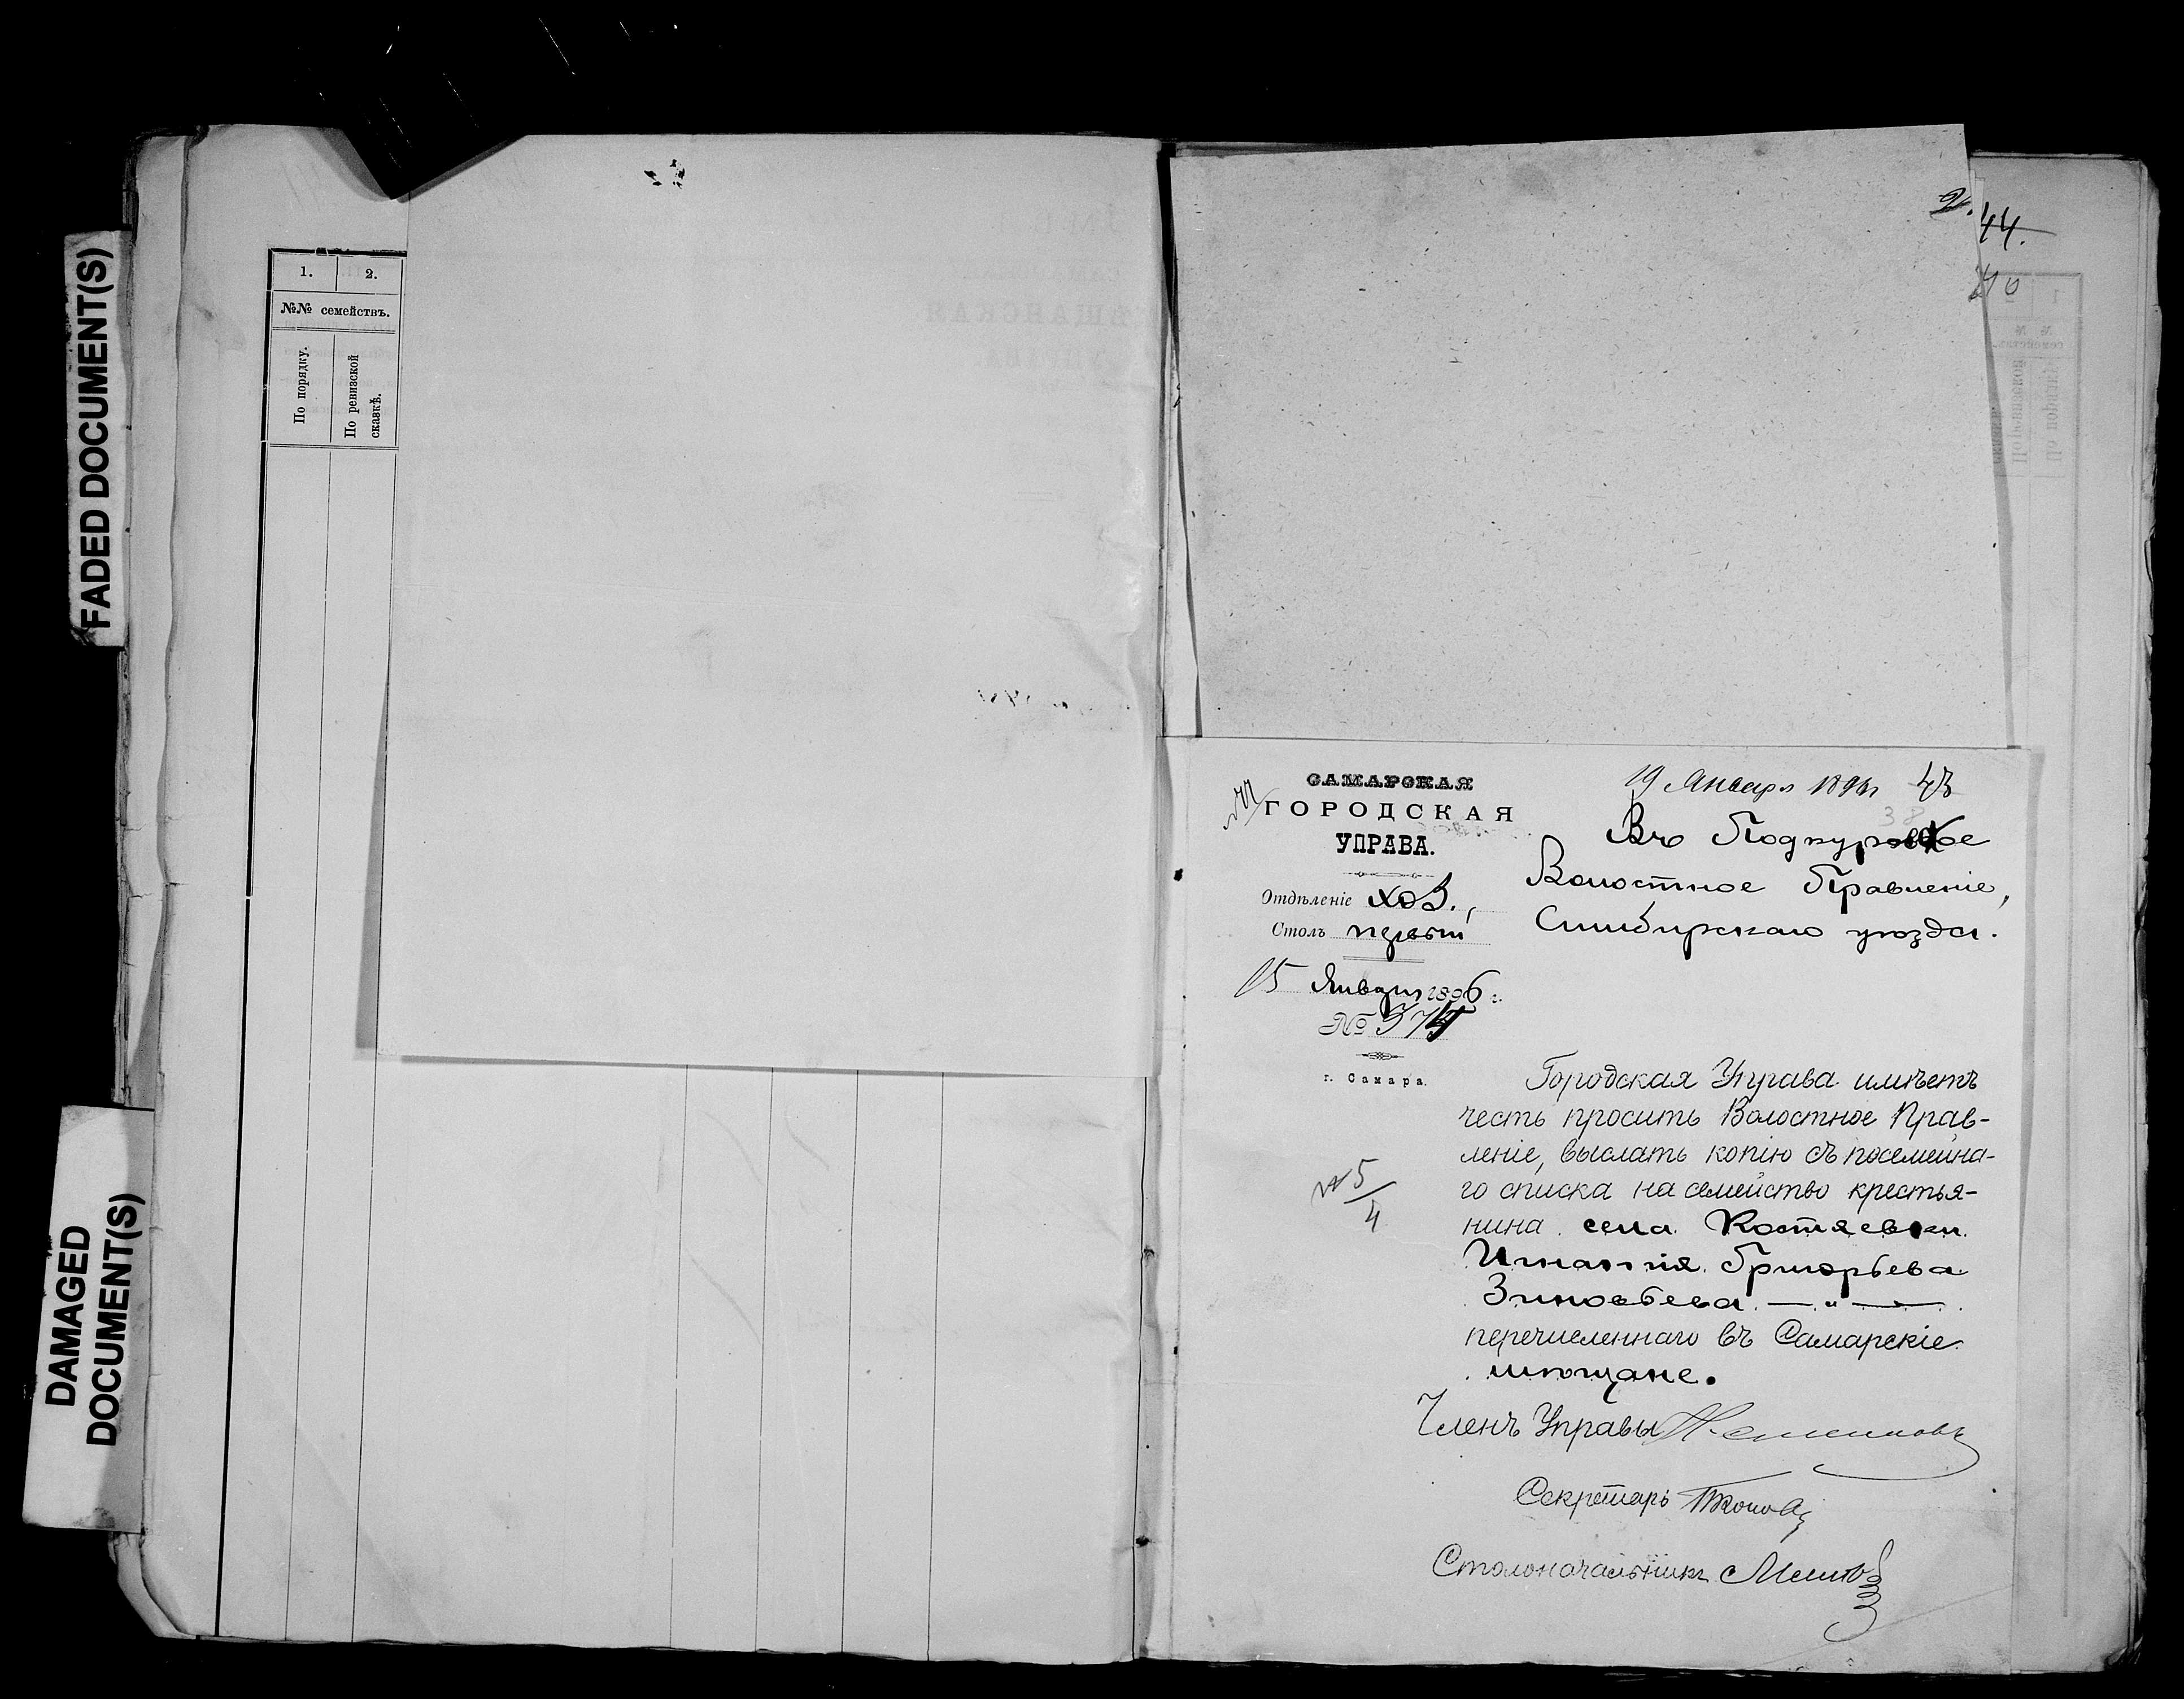 FADED DOCUMENT(S)
DAMAGED
DOCUMENT(S)
1. 2.
№№ семействъ.
По порядку.
По ревизской
сказкѣ.
44.
САМАРСКАЯ
ГОРОДСКАЯ
УПРАВА.
Отдѣленіе хоз.,
Столъ первый
15 Января 1896 г.
№ 374
г. Самара.
№ 5/4
19 Января 1896 г 43
38
Въ
Волостное Правленіе,
Симбирскаго уѣзда.
Городская Управа имѣетъ
честь просить Волостное Прав-
леніе, выслать копію съ посемейна-
го списка на семейство крестья-
нина села Костяевки
Игнатія Григорьева
Зиновьева — " —
перечисленнаго въ Самарскіе
мѣщане.
Членъ Управы
Секретарь
Столоначальникъ